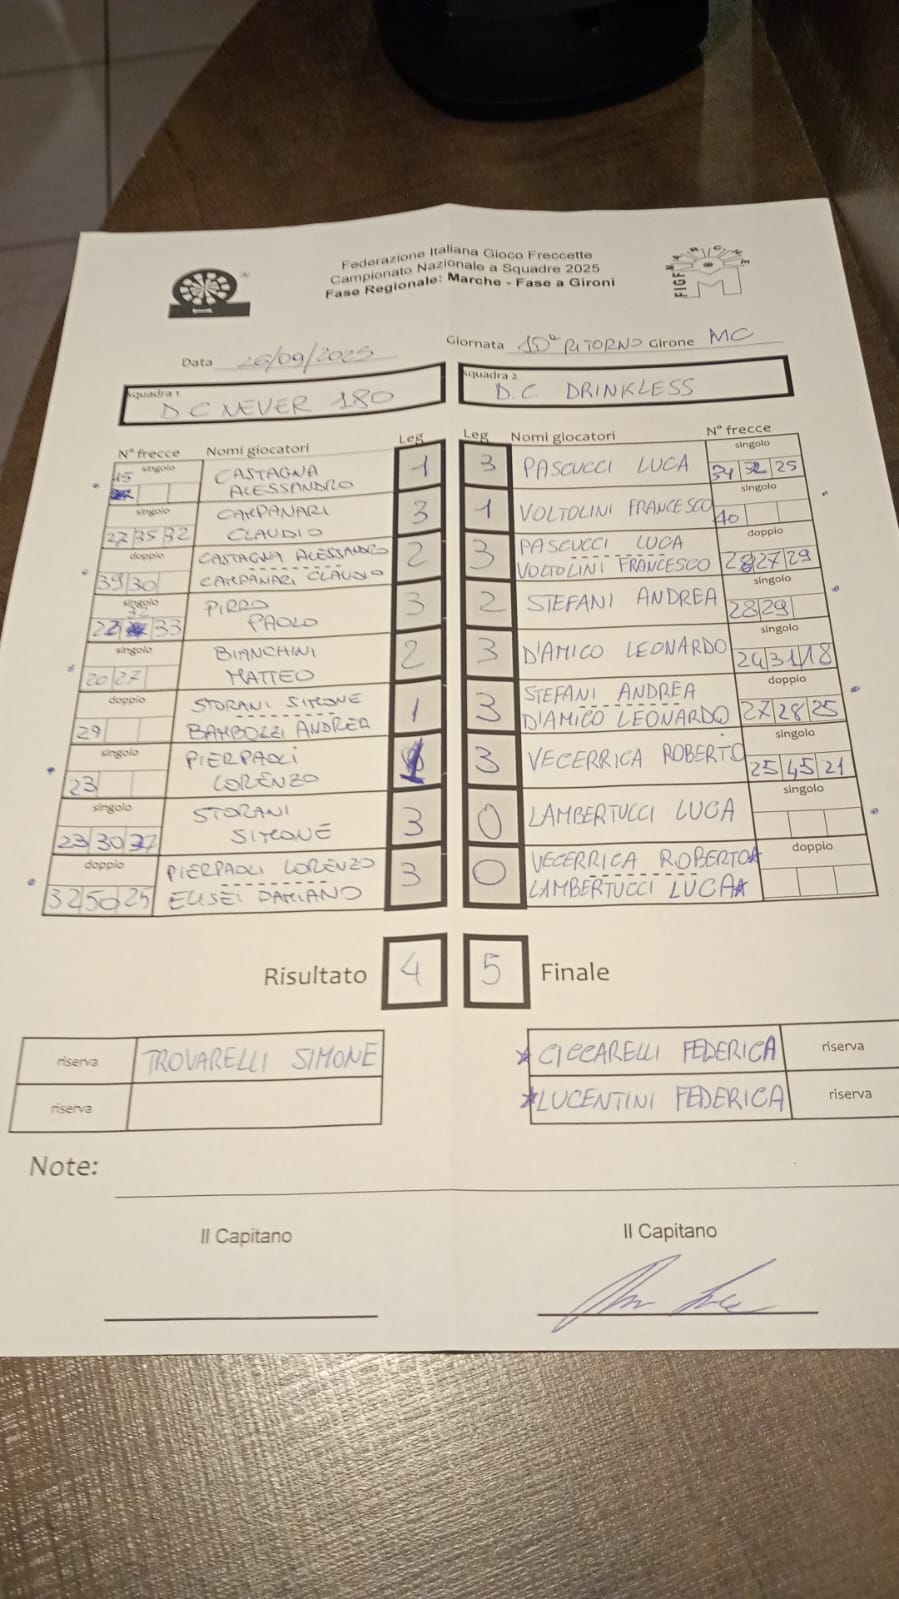 Federazione Italiana Gioco Freccette
Campionato Nazionale a Squadre 2025
Fase Regionale: Marche - Fase a Gironi
FIGF MARCHE
M
Data 26/09/2025
Giornata 10ª RITORNO Girone MC
Squadra 1
D C NEVER 180
Squadra 2
D.C. DRINKLESS
N° frecce Nomi giocatori Leg
Leg Nomi giocatori N° frecce
singolo 15 CASTAGNA ALESSANDRO 1
3 PASCUCCI LUCA singolo 34 32 25
singolo 27 35 32 CAMPANARI CLAUDIO 3
1 VOLTOLINI FRANCESCO singolo 40
doppio 39 30 CASTAGNA ALESSANDRO CAMPANARI CLAUDIO 2
3 PASCUCCI LUCA VOLTOLINI FRANCESCO doppio 28 27 29
singolo 22 32 33 PIRRO PAOLO 3
2 STEFANI ANDREA singolo 28 29
singolo 20 27 BIANCHINI MATTEO 2
3 D'AMICO LEONARDO singolo 24 31 18
doppio 29 STORANI SIMONE BAMBOZZI ANDREA 1
3 STEFANI ANDREA D'AMICO LEONARDO doppio 27 28 25
singolo 23 PIERPAOLI LORENZO 1
3 VECERRICA ROBERTO singolo 25 45 21
singolo 23 30 37 STORANI SIMONE 3
0 LAMBERTUCCI LUCA singolo
doppio 32 50 25 PIERPAOLI LORENZO ELISEI DAMIANO 3
0 VECERRICA ROBERTO LAMBERTUCCI LUCA doppio
Risultato 4 5 Finale
riserva TROVARELLI SIMONE
CICCARELLI FEDERICA riserva
riserva
LUCENTINI FEDERICA riserva
Note:
Il Capitano
Il Capitano